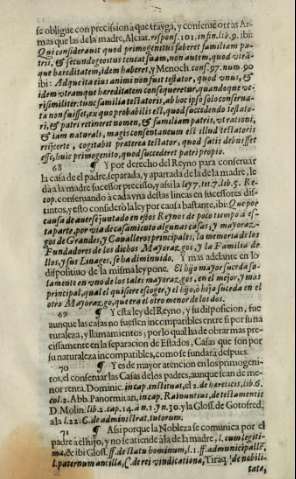 se obligue con precision à que trayga, y conserue otras Ar-
mas que las de la madre, Alciat. respons. 101. in fin. lib. 9. ibi:
Qui considerauit quod primogenitus faberet familiam pa-
tris, & secundogenitus tenet suam, non autem, quod vtrã-
que hæreditatem, idem haberet, y Menoch. cons. 97. num. 90
ibi: Adque ita eius animi non fuit testator, quod vnus, &
idem vtramque hæreditatem consequeretur, quandoque ve-
risimiliter tunc familia testatoris, ab hoc ipso solo conserua-
ta non fuisset, ex quo probabilis est, quod succedendo testato-
ri, & patri retineret nomen, & familiam patris, vt rationi,
& iam naturali, magis consentaneum est illud testatoris
cogitabit præterea testator, quod satis debuisset
esse, huic primogenito, quod succederet patri proprio.
68 ¶ Y por derecho del Reyno para conseruar
la casa de el padre, separada, y apartada de la de la madre, le
dà à la madre sucesor preciso, y así la ley 7. tit. 7. lib. 5. Re-
cop. conseruando à cada vna destas lineas en sucessores dis-
tintos, y esto consideró la ley por causa bastante, ibi: Que por
causa de auerse juntado en estos Reynos de poco tiempo à es-
ta parte, por via de casamiento algunas casas, y mayoraz-
gos de Grandes, y Caualleros principales, la memoria de los
Fundadores de los dichos Mayorazgos, y la Familia de
llos, y sus Linages, se ha diminuido. Y mas adelante en lo
dispositiuo de la misma ley pone. El hijo mayor suceda so-
lamente en vno de los tales mayorazgos, en el mejor, y mas
principal, qual el quisiere escoger, y el hijo, ò hija suceda en el
otro Mayorazgo, que era el otro menor de los dos.
69 ¶ Y esta ley del Reyno, y su disposicion, fue
aunque las casas no fuessen incompatibles entre si por su na-
turaleza, y llamamientos, por lo qual ha de obrar mas pre-
cisamente en la separacion de Estados, Casas que son por
su naturaleza incompatibles, como se fundarà despues.
70 ¶ Y es de mayor atencion en los primogeni-
tos, el conseruar las Casas de los padres, aunque sean de me-
nor renta, Dominic. in cap. col. 2. de hæreticis, lib. 6.
col. 2. Abb. Panormitan, in cap. Rainuntius, de testamentis
D. Molin. lib. 2. cap. 14. à n. 17. n. 30. y la Gloss. de Gotofred,
à la l. 22. C. de administrat. tutorum.
71 ¶ Assi porque la Nobleza se comunica por el
padre à el hijo, y no se atiende à la de la madre, l. cum legiti-
mæ, & ibi Gloss. ff. de statu hominum, l. 1. ff. ad municipalē,
l. paternum ancilla, C. de rei vindicatione, Tiraq. de nobili-
tate,